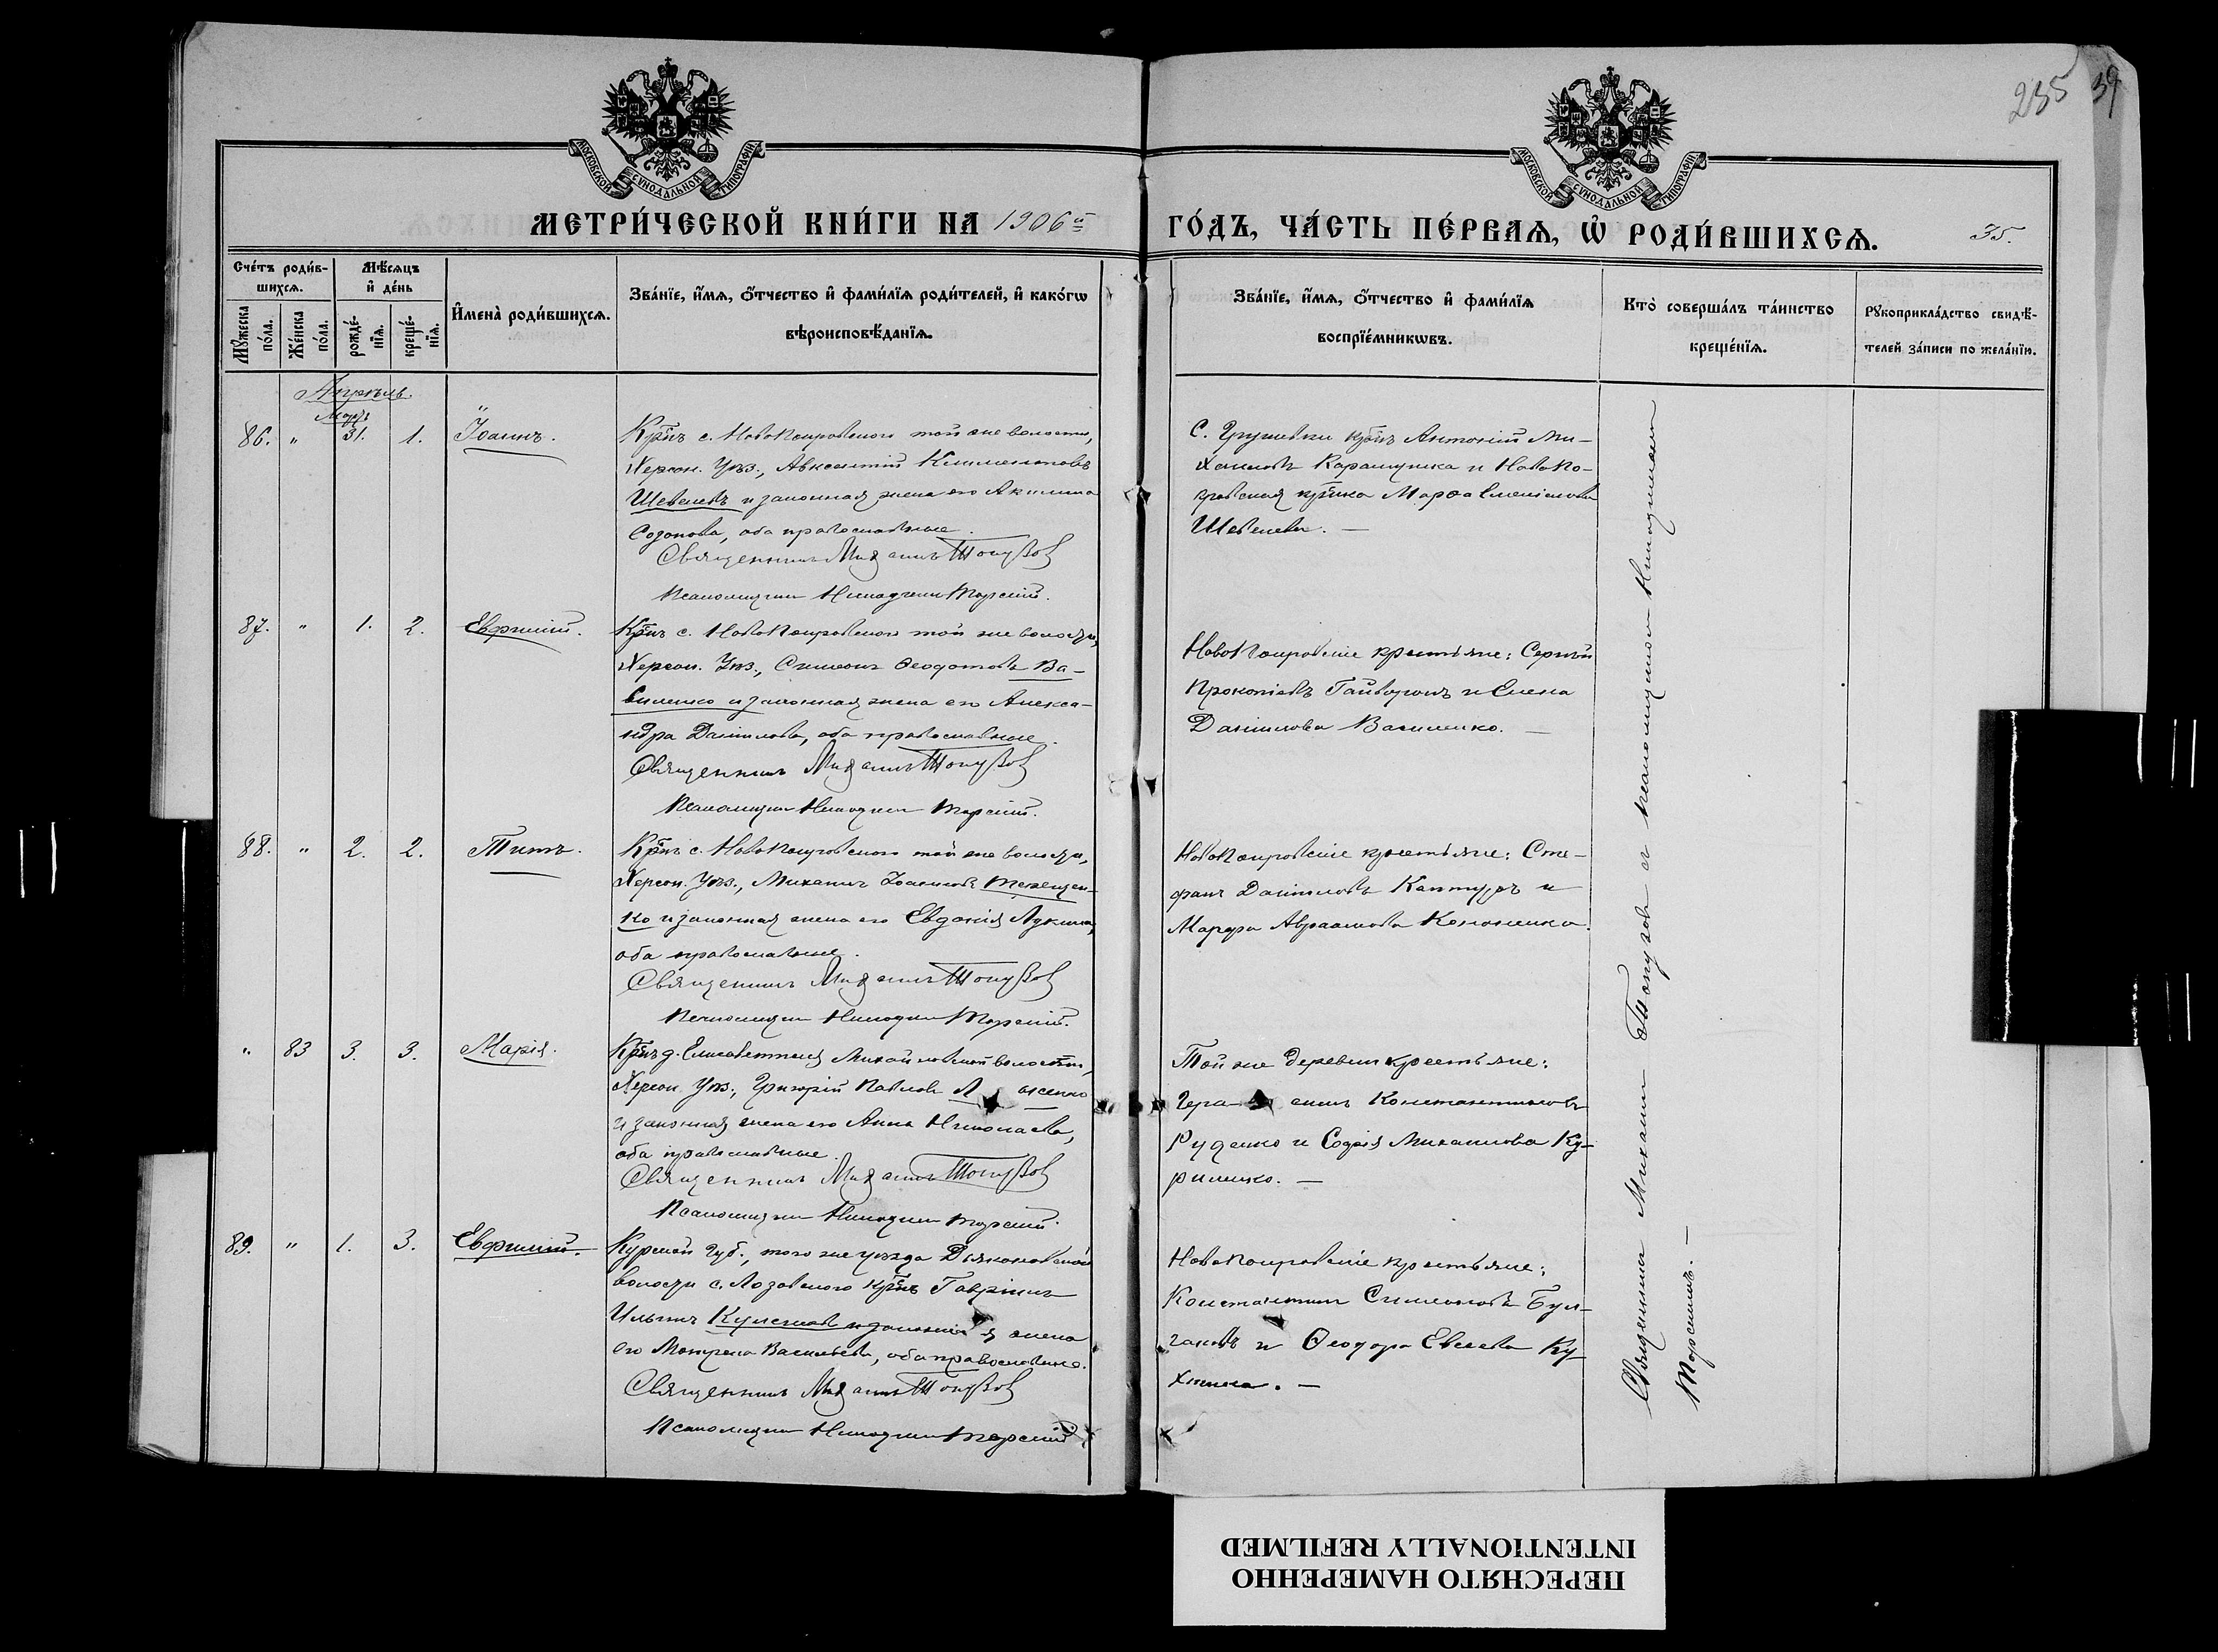 235 39
МОСКОВСКОЙ СУНОДАЛЬНОЙ ТИПОГРАФІИ
МОСКОВСКОЙ СУНОДАЛЬНОЙ ТИПОГРАФІИ
МЕТРИ́ЧЕСКОЙ КНИ́ГИ НА 1906й ГО́ДЪ, ЧА́СТЬ ПЕ́РВАѦ, Ѡ РОДИ́ВШИХСѦ. 35.
Сче́тъ роди́в-
шихсѧ.
Мꙋжеска по́ла.
Же́нска по́ла.
Мѣ́сѧцъ
и҆ де́нь
рожде́-
нїѧ.
креще́-
нїѧ.
И҆мена̀ роди́вшихсѧ.
Зва́нїе, и҆́мѧ, ѻ҆́тчество и҆ фами́лїѧ роди́телей, и҆ како́гѡ
вѣроисповѣ́данїѧ.
Зва́нїе, и҆́мѧ, ѻ҆́тчество и҆ фами́лїѧ
воспрїе́мникѡвъ.
Кто̀ соверша́лъ та́инство
креще́нїѧ.
Рꙋкоприкла́дство свидѣ́-
телей за́писи по жела́нїю.
Апрѣль.
Мартъ
86. " 31. 1. Іоаннъ.
Крнъ с. Новопокровского той же волости,
Херсон. Уѣз., Авксентій Климентовъ
Шевелевъ и законная жена его Акилина
Созонова, оба православные.
Священникъ Михаилъ Топузов
Псаломщикъ Никодимъ Торскій.
С. Грушевки крнъ Антоній Ми-
хаиловъ Карамушка и Новопо-
кровская крнка Марѳа
Шевелева. —
87. " 1. 2. Евфимій.
Крнъ с. Новопокровского той же волости,
Херсон. Уѣз., Симеонъ Ѳеодотовъ Ва-
силенко и законная жена его Алекса-
ндра Даніилова, оба православные.
Священникъ Михаилъ Топузов
Псаломщикъ Никодимъ Торскій.
Новопокровскіе крестьяне: Сергій
Прокопіевъ Гайворонъ и Елена
Даніилова Василенко. —
88. " 2. 2. Титъ.
Крнъ с. Новопокровского той же волости,
Херсон. Уѣз., Михаилъ Іоанновъ Терещен-
ко и законная жена его Евдокія Лукина,
оба православные.
Священникъ Михаилъ Топузов
Псаломщикъ Никодимъ Торскій.
Новопокровскіе крестьяне: Сте-
фанъ Даніиловъ Каптуръ и
Марфа Авраамова Кононенкова.
" 83 3. 3. Марія.
Крнъ д. Елисаветтней Михайловской волости,
Херсон. Уѣз., Григорій Павлов
и законная жена его Анна Николаева,
оба православные.
Священникъ Михаилъ Топузов
Псаломщикъ Никодимъ Торскій.
Той же деревни крестьяне:
Герасимъ Константиновъ
Руденко и Софія Михаилова Ку-
риленко. —
89. " 1. 3. Евфимій.
Курской Губ., того же уѣзда Дьяконовской
волости с. Лозовского крнъ Гавріилъ
Ильинъ и законная жена
его Матрена Васильева, оба православные.
Священникъ Михаилъ Топузов
Псаломщикъ Никодимъ Торскій.
Новопокровскіе крестьяне:
Константинъ Симеоновъ Бул-
гаковъ и Ѳеодора Евсеева Ку-
хтина. —
Священникъ Михаилъ Топузов съ псаломщикомъ Никодимомъ
Торскимъ. —
ПЕРЕСНЯТО НАМЕРЕННО
INTENTIONALLY REFILMED